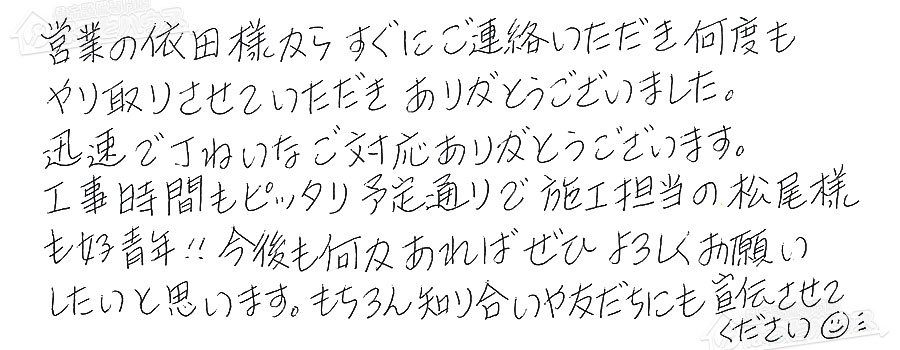 営業の依田様からすぐにご連絡いただき何度も
やり取りさせていただきありがとうございました。
迅速で丁ねいなご対応ありがとうございます。
工事時間もピッタリ予定通りで施工担当の松尾様
も好青年!!今後も何かあればぜひよろしくお願い
したいと思います。もちろん知り合いや友だちにも宣伝させて
ください